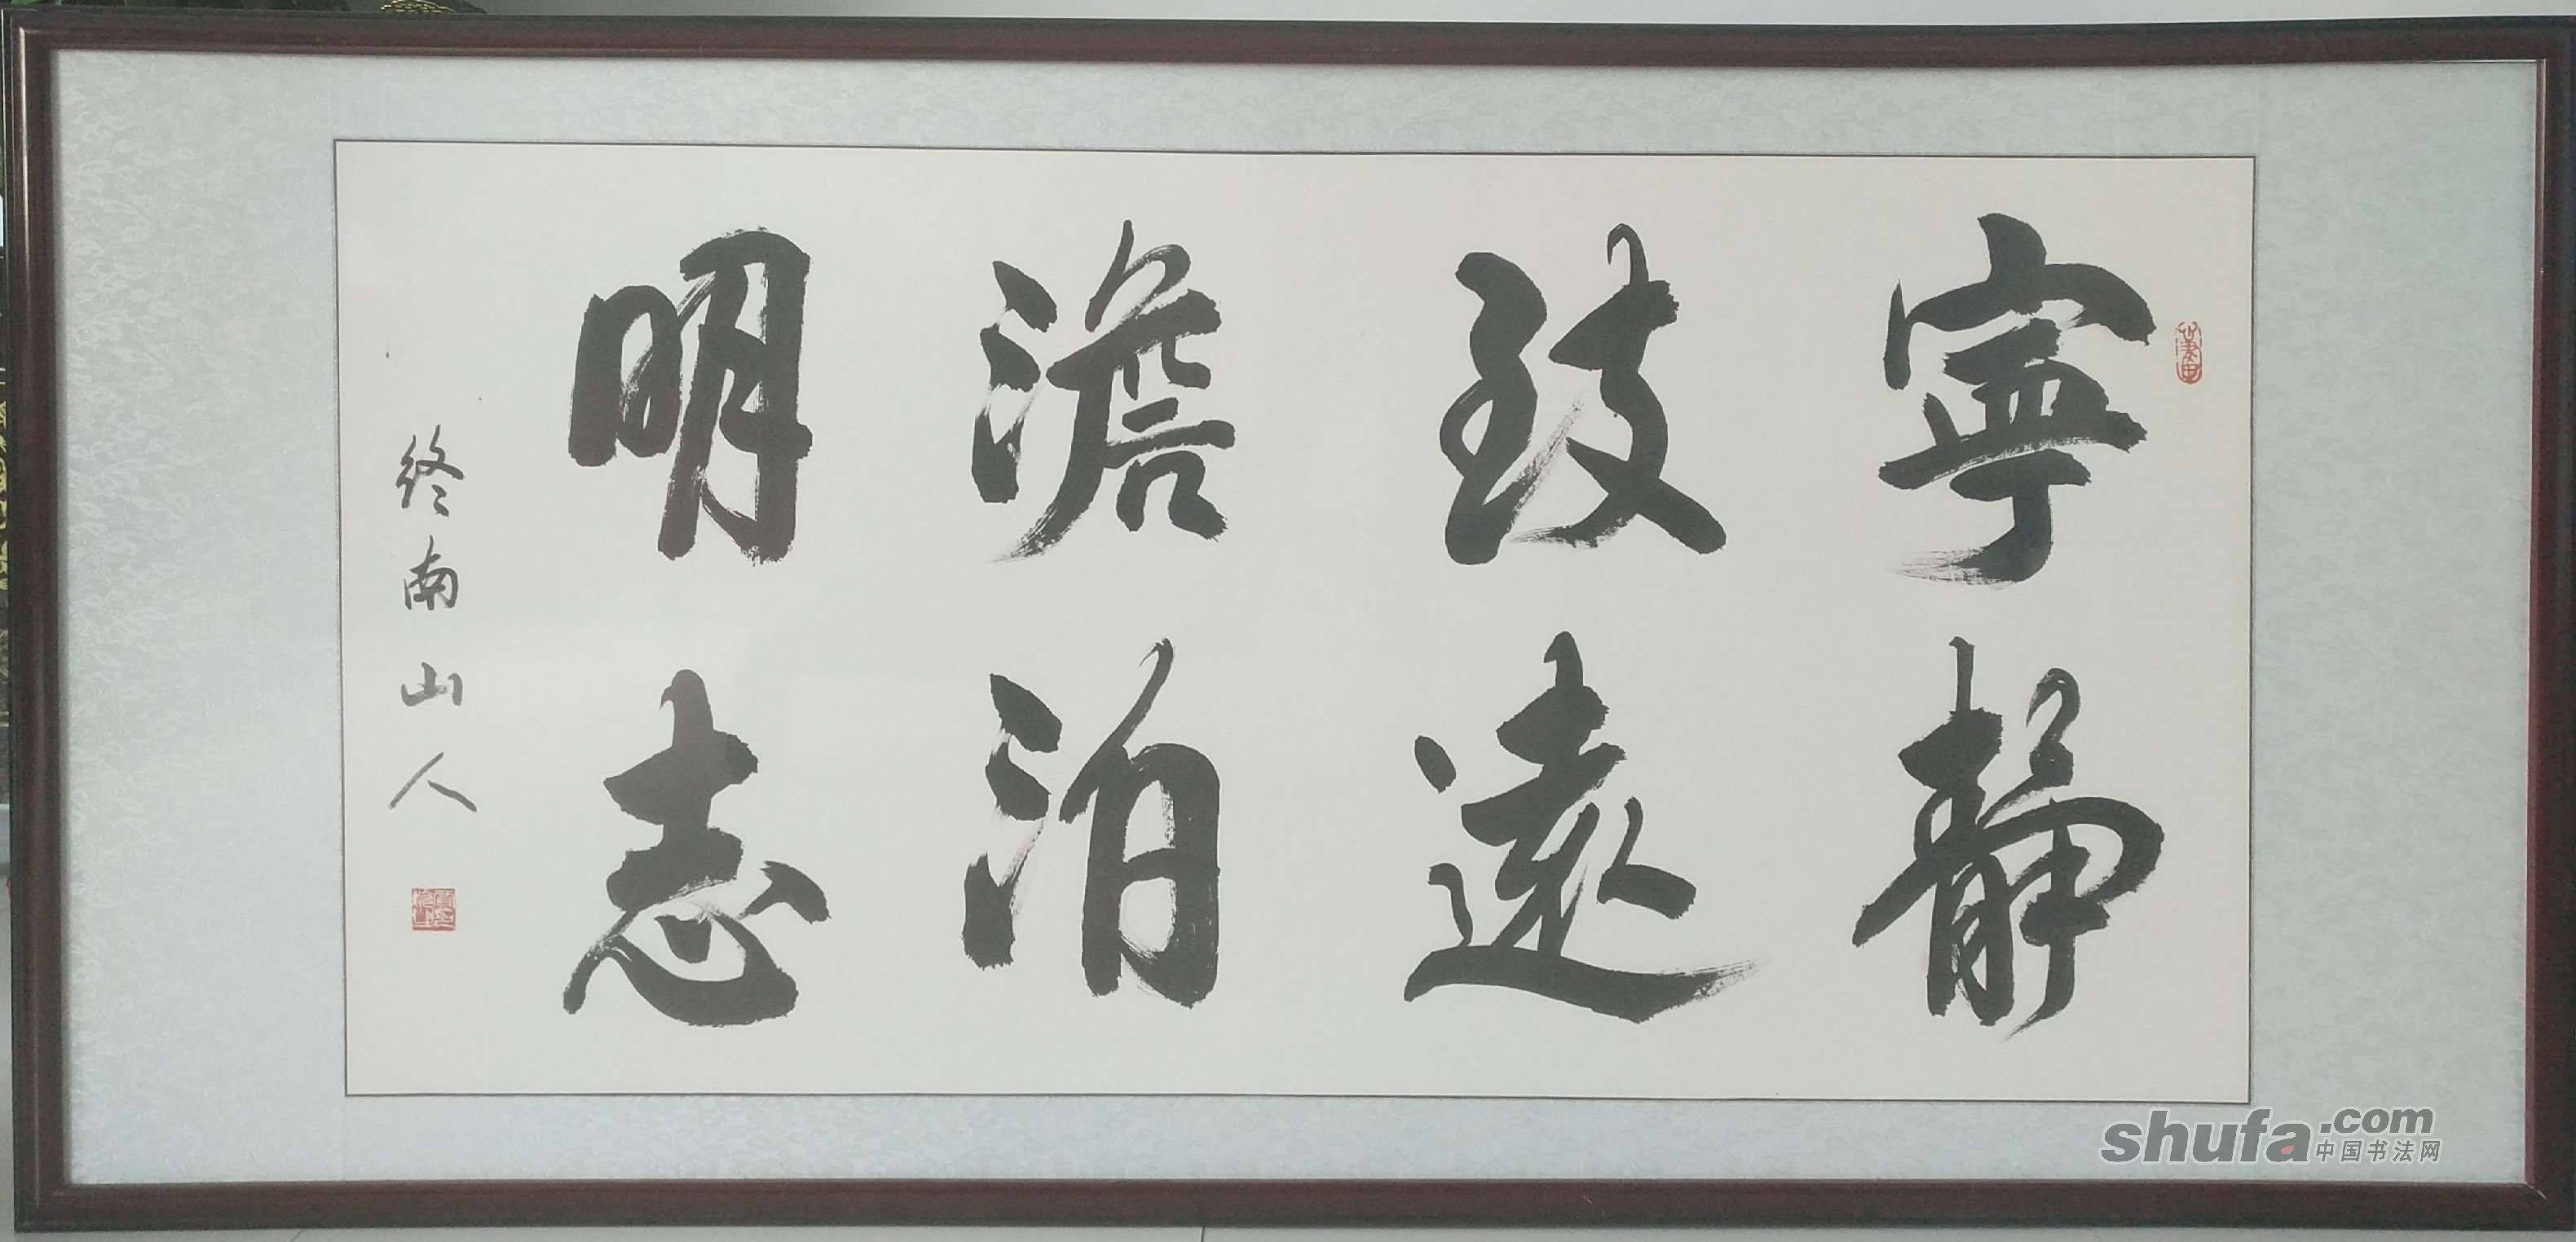 寧靜
致遠
澹泊
明志
終南山人
shufa.com
中国书法网